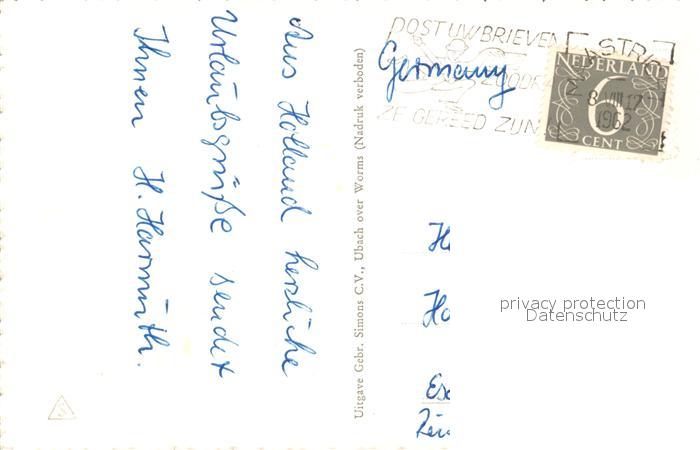 Aus Holland herzliche
Urlaubsgrüße sendet
Ihnen H. Harmuth.
Uitgave Gebr. Simons C.V., Ubach over Worms (Nadruk verboden)
POST UW BRIEVEN
ZE GEREED ZIJN
Germany
NEDERLAND
6
CENT
8 VIII 17
1962
privacy protection
Datenschutz